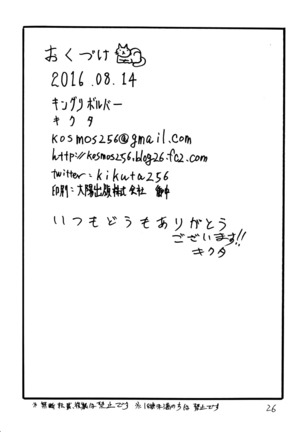 おくづけ
2016.08.14
キングリボルバー
キクタ
kosmos256@gmail.com
http://kosmos256.blog26.fc2.com
twitter: kikuta256
印刷:大陽出版株式会社 御中
いつもどうもありがとう
ございます!!
キクタ
※無断転載、複製は禁止です ※18歳未満の方は禁止です
26